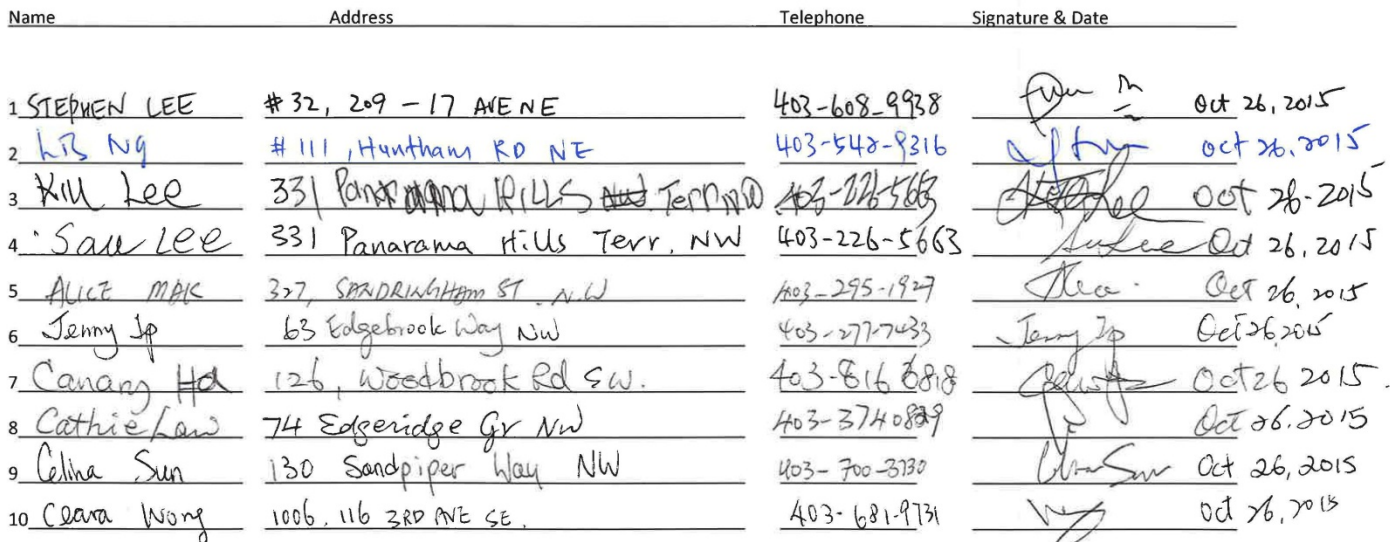 Name Address Telephone Signature & Date
1 STEPHEN LEE #32, 209 - 17 AVE NE 403-608-9938 Oct 26, 2015
2 NG #111, Huntham RD NE 403-542-9316 Oct 26, 2015
3 Kill Lee 331 Panorama HILLS Terr NW 403-226-5663 Oct 26-2015
4 Sau LEE 331 Panarama Hills Terr. NW 403-226-5663 Oct 26, 2015
5 ALICE MAK 327, SANDRINGHAM ST. N.W 403-295-1927 Oct 26, 2015
6 Jenny Ip 63 Edgebrook Way NW 403-277-7433 Jenny Ip Oct 26, 2015
7 Canany 126, Woodbrook Rd SW. 403-816 6818 Oct 26 2015.
8 Cathie Law 74 Edgeridge Gr NW 403-374 0829 Oct 26, 2015
9 Celina Sun 130 Sandpiper Way NW 403-700-3730 Oct 26, 2015
10 Ceara Wong 1006, 116 3RD AVE SE. 403-681-9731 Oct 26, 2015